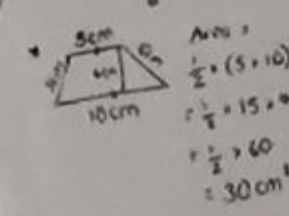 5cm
10cm
Area =
1/2 × (5 + 10)
= 1/2 × 15 ×
= 1/2 × 60
= 30 cm²